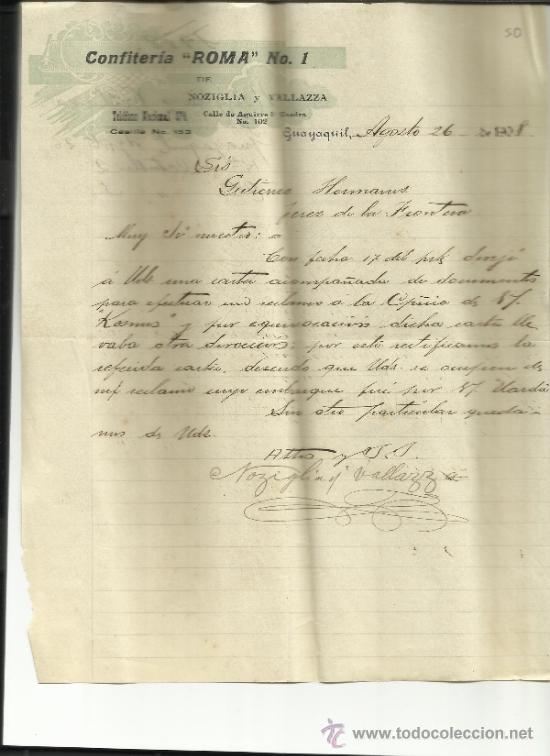 50
Confitería "ROMA" No. 1
DE
NOZIGLIA y VALLAZZA
Teléfono Nacional
Calle de Aguirre 2ª Cuadra
Casilla No. 153
No. 102
Guayaquil, Agosto 26 de 1908.
Srs
Gutierrez Hermanos
Jerez de la Frontera
Muy Srs nuestros:
Con fecha 17 del pte dirijí
á Uds una carta acompañada de documentos
para efectuar un reclamo a la Cpñia de
"Kosmos" y por equivocación dicha carta lle
vaba otra dirección: por esto rectificamos la
referida carta, deseando que Uds. se ocupen de
mi reclamo cuyo embarque fué por
Sin otro particular queda
mos de Uds.
Attos y S.S.
Noziglia y Vallazza
www.todocoleccion.net